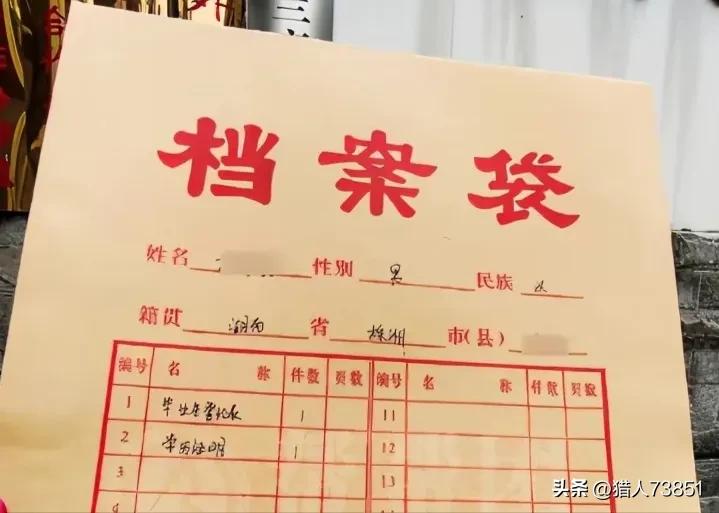 档案袋
姓名 性别 男 民族
籍贯 湖南 省 株洲 市(县)
编号 名称 件数 页数 编号 名称 件数 页数
1 毕业生登记表 1 11
2 学历证明 1 12
3 13
4
头条 @猎人73851